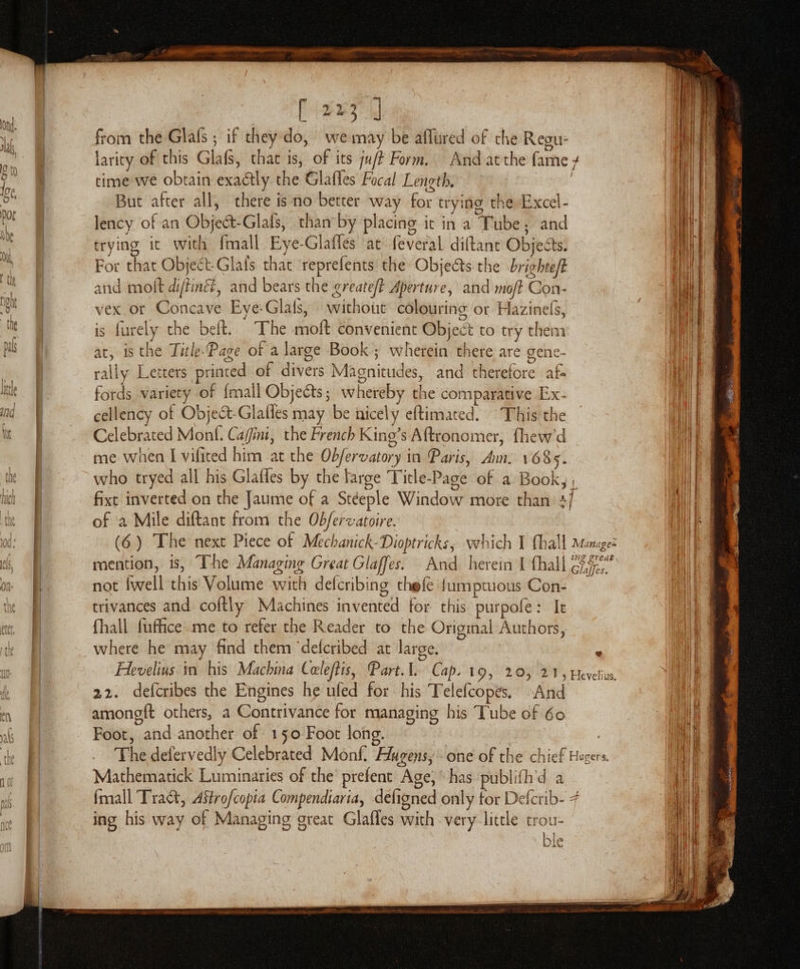 [ 223 ]
from the Glaſs; if they do, we may be aſſured of the Regu-
larity of this Glaſs, that is, of its juſt Form. And at the ſame
time we obtain exactly the Glaſſes Focal Length.
But after all, there is no better way for trying the Excel-
lency of an Object-Glaſs, than by placing it in a Tube; and
trying it with ſmall Eye-Glaſſes at ſeveral diſtant Objects.
For that Object-Glaſs that repreſents the Objects the brighteſt
and moſt diſtinct, and bears the greateſt Aperture, and moſt Con-
vex or Concave Eye-Glaſs, without colouring or Hazineſs,
is ſurely the beſt. The moſt convenient Object to try them
at, is the Title-Page of a large Book; wherein there are gene-
rally Letters printed of divers Magnitudes, and therefore af-
fords variety of ſmall Objects; whereby the comparative Ex-
cellency of Object-Glaſſes may be nicely eſtimated. This the
Celebrated Monſ. Caſſini, the French King's Aſtronomer, ſhew'd
me when I viſited him at the Obſervatory in Paris, Ann. 1685.
who tryed all his Glaſſes by the large Title-Page of a Book,
fixt inverted on the Jaume of a Steeple Window more than
of a Mile diſtant from the Obſervatoire.
(6) The next Piece of Mechanick-Dioptricks, which I ſhall Manage-
mention, is, The Managing Great Glaſſes. And herein I ſhall ing great
not ſwell this Volume with deſcribing theſe ſumptuous Con- Glaſſes.
trivances and coſtly Machines invented for this purpoſe: It
ſhall ſuffice me to refer the Reader to the Original Authors,
where he may find them deſcribed at large.
Hevelius in his Machina Cæleſtis, Part. I. Cap. 19, 20, 21, Hevelius.
22. deſcribes the Engines he uſed for his Teleſcopes. And
amongſt others, a Contrivance for managing his Tube of 60
Foot, and another of 150 Foot long.
The deſervedly Celebrated Monſ. Hugens, one of the chief Hugens.
Mathematick Luminaries of the preſent Age, has publiſh'd a
ſmall Tract, Aſtroſcopia Compendiaria, deſigned only for Deſcrib-
ing his way of Managing great Glaſſes with very little trou-
ble